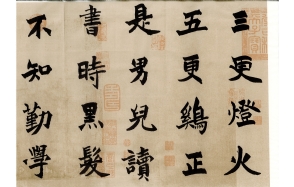 三更燈火
五更鷄正
是男兒讀
書時黑髮
不知勤學